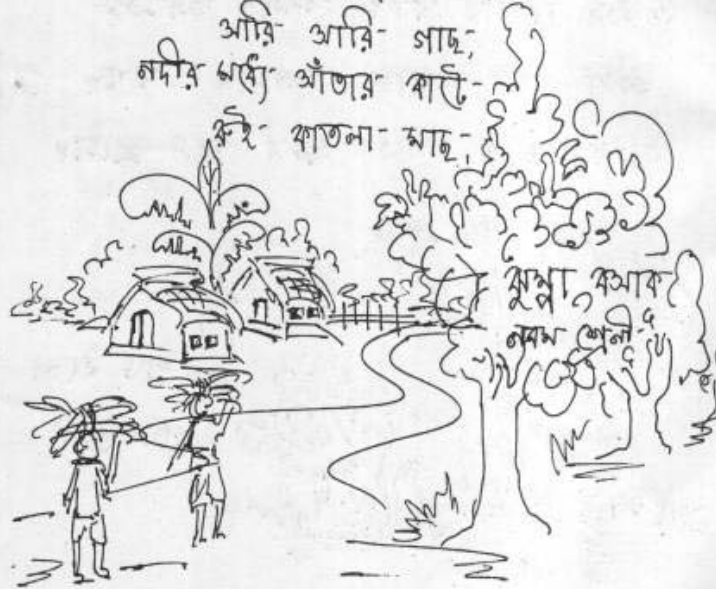 সারি সারি গাছ,
নদীর মধ্যে সাঁতার কাটে
রুই কাতলা মাছ,
ঝুম্পা বসাক
নবম শ্রেণী